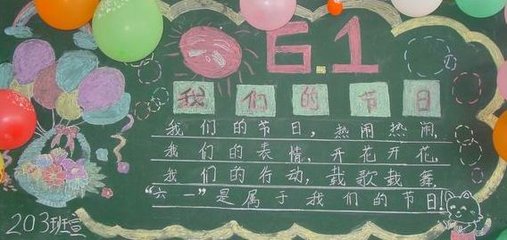 6.1
我们的节日
我们的节日，热闹热闹，
我们的表情，开花开花，
我们的行动，载歌载舞，
“六一”是属于我们的节日！
203班宣